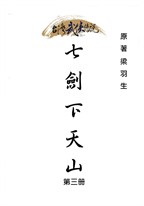 原著梁羽生
七劍下天山
第三冊